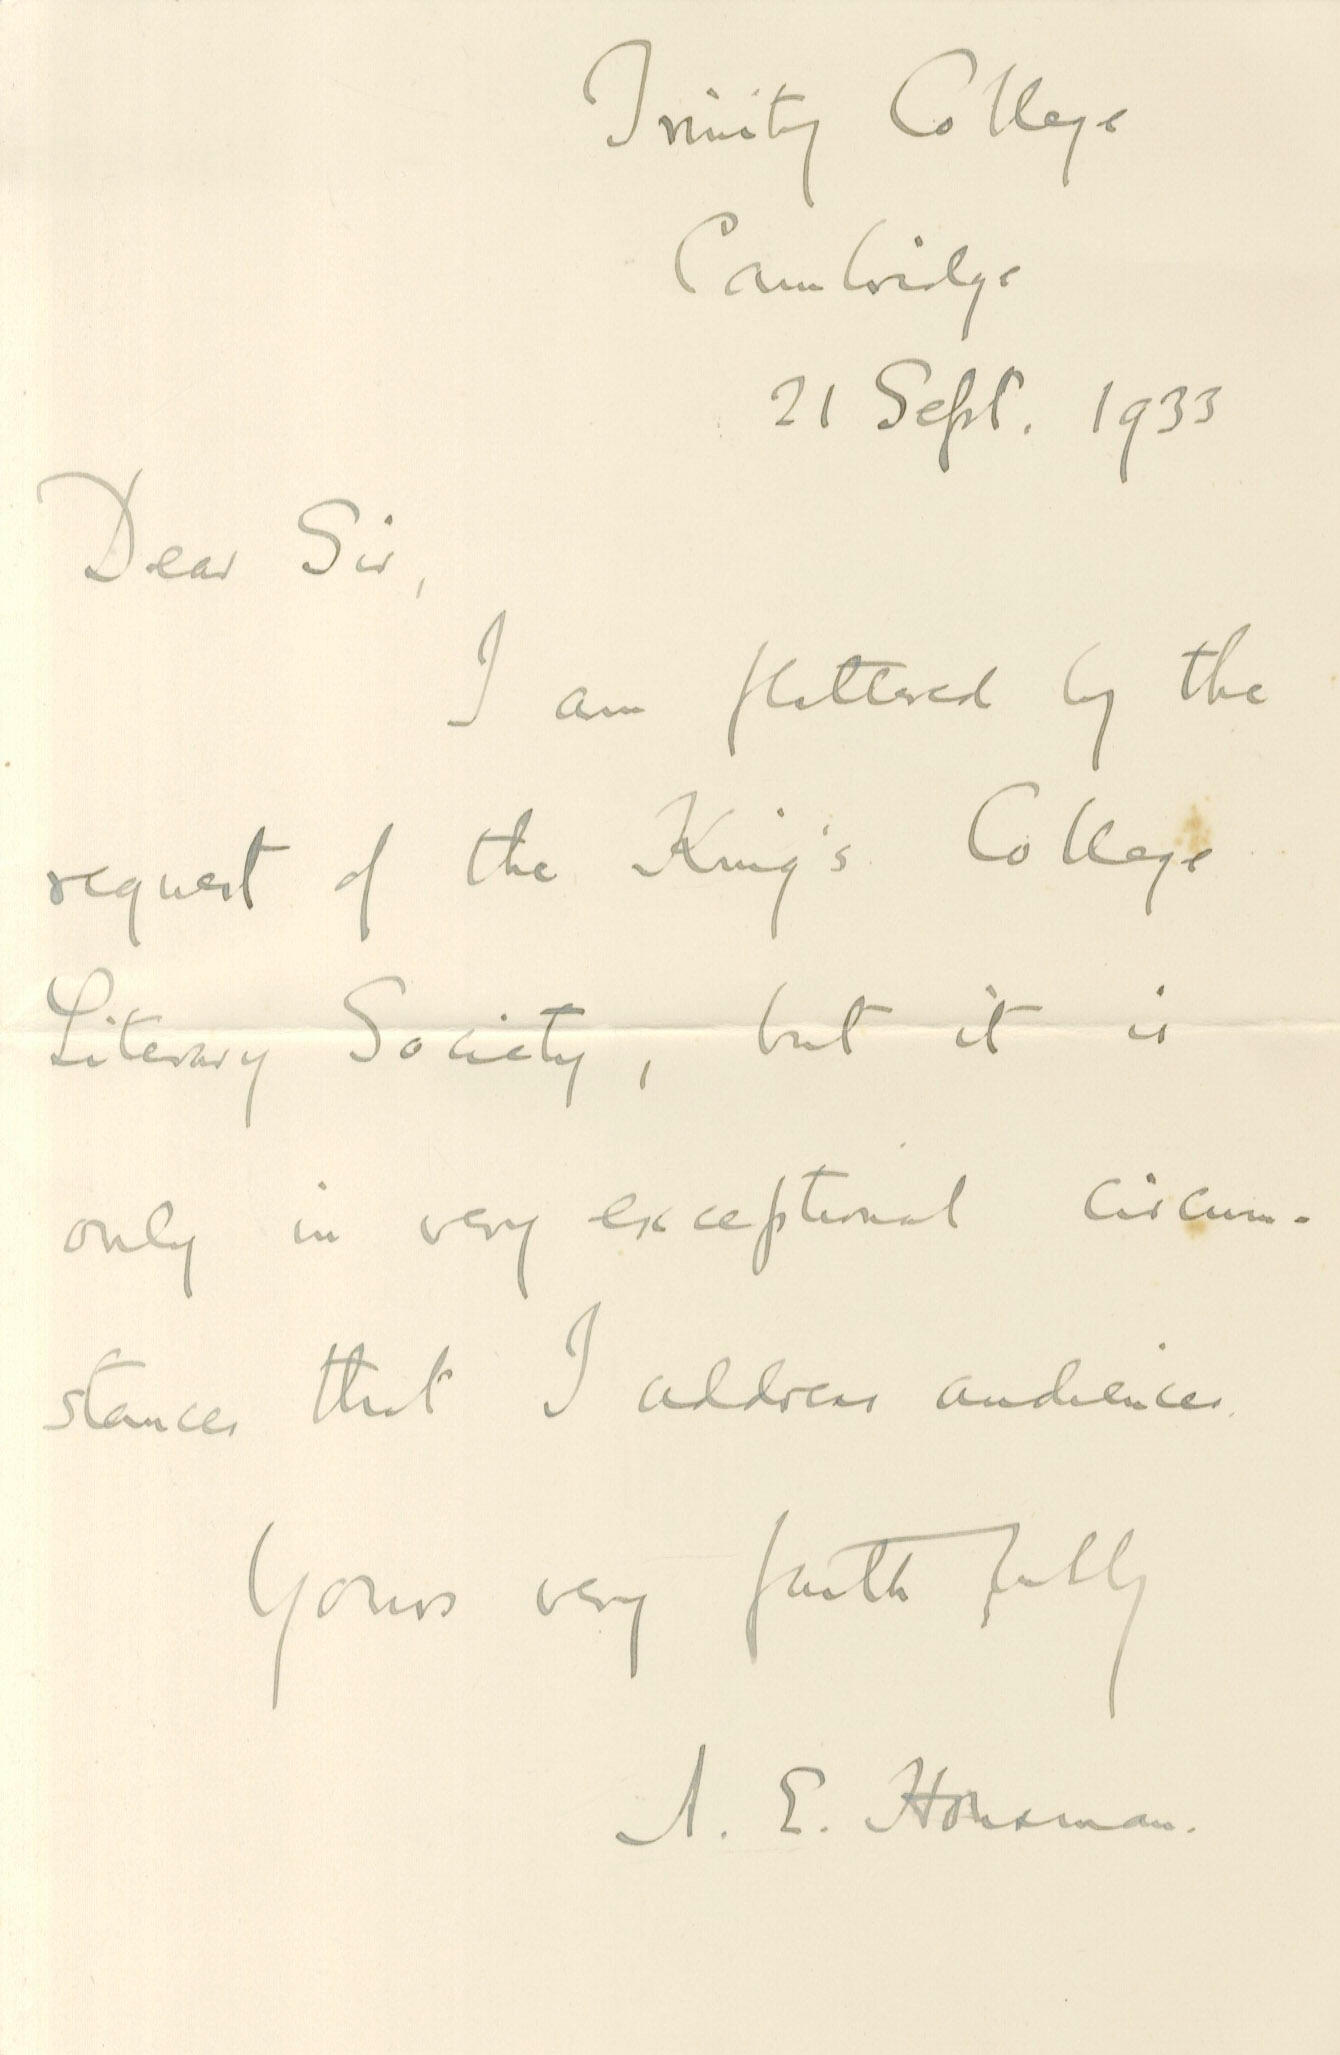 Trinity College
Cambridge
21 Sept. 1933
Dear Sir,
I am flattered by the
request of the King's College
Literary Society, but it is
only in very exceptional circum-
stances that I address audiences.
Yours very faithfully
A. E. Housman.